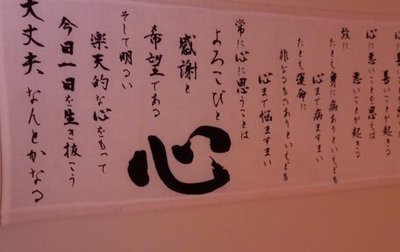 善いことが起きる
心に悪いことを思えば
悪いことが起きる
故に
たとえ身に病ありといえども
心まで病ますまい
たとえ運命に
非なるものありといえども
心まで悩ますまい
常に心に思うことは
よろこびと
感謝と
希望である
心
そして明るい
楽天的な心をもって
今日一日を生き抜こう
大丈夫 なんとかなる